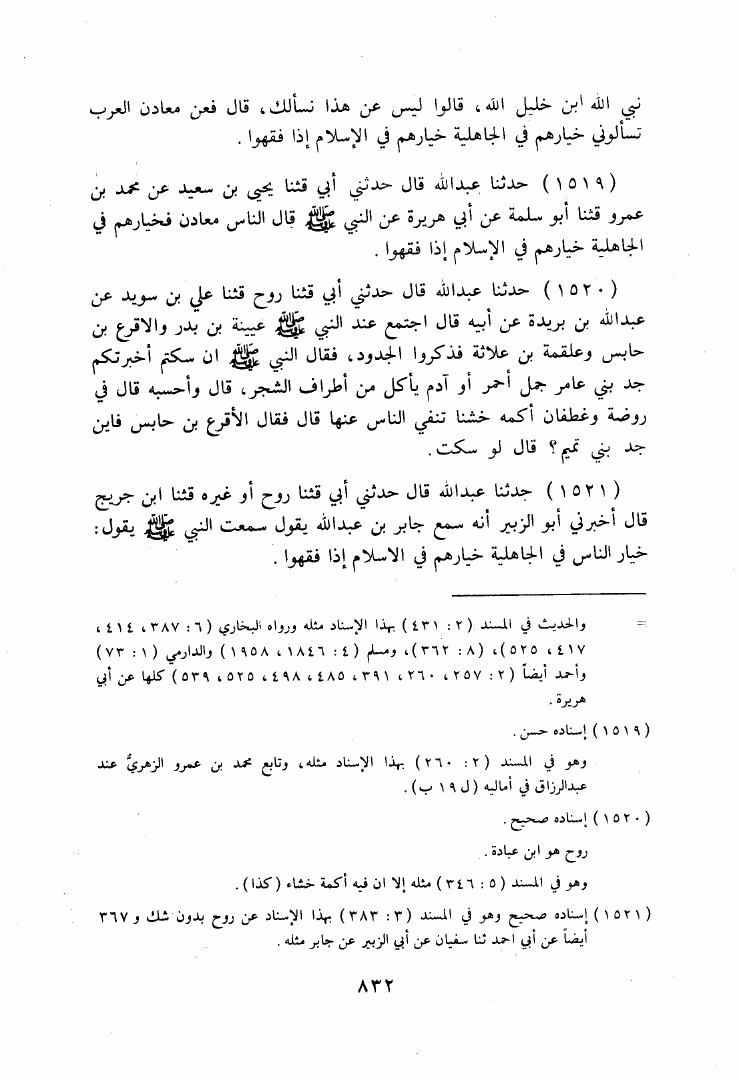 نبي الله ابن خليل الله، قالوا ليس عن هذا نسألك، قال فعن معادن العرب
تسألوني خيارهم في الجاهلية خيارهم في الإسلام إذا فقهوا.
(١٥١٩) حدثنا عبدالله قال حدثني أبي قثنا يحيى بن سعيد عن محمد بن
عمرو قثنا أبو سلمة عن أبي هريرة عن النبي ﷺ قال الناس معادن فخيارهم في
الجاهلية خيارهم في الإسلام إذا فقهوا.
(١٥٢٠) حدثنا عبدالله قال حدثني أبي قثنا روح قثنا علي بن سويد عن
عبدالله بن بريدة عن أبيه قال اجتمع عند النبي ﷺ عيينة بن بدر والاقرع بن
حابس وعلقمة بن علاثة فذكروا الجدود، فقال النبي ﷺ ان سكتم أخبرتكم
جد بني عامر جمل أحمر أو آدم يأكل من أطراف الشجر، قال وأحسبه قال في
روضة وغطفان أكمه خشنا تنفي الناس عنها قال فقال الأقرع بن حابس فاين
جد بني تميم؟ قال لو سكت.
(١٥٢١) حدثنا عبدالله قال حدثني أبي قثنا روح أو غيره قثنا ابن جريج
قال أخبرني أبو الزبير أنه سمع جابر بن عبدالله يقول سمعت النبي ﷺ يقول:
خيار الناس في الجاهلية خيارهم في الاسلام إذا فقهوا.
= والحديث في المسند (٢: ٤٣١) بهذا الإسناد مثله ورواه البخاري (٦: ٣٨٧، ٤١٤،
٤١٧، ٥٢٥)، (٨: ٣٦٢)، ومسلم (٤: ١٨٤٦، ١٩٥٨) والدارمي (١: ٧٣)
وأحمد أيضاً (٢: ٢٥٧، ٢٦٠، ٣٩١، ٤٨٥، ٤٩٨، ٥٢٥، ٥٣٩) كلها عن أبي
هريرة.
(١٥١٩) إسناده حسن.
وهو في المسند (٢: ٢٦٠) بهذا الإسناد مثله، وتابع محمد بن عمرو الزهريُّ عند
عبدالرزاق في أماليه (ل ١٩ ب).
(١٥٢٠) إسناده صحيح.
روح هو ابن عبادة.
وهو في المسند (٥: ٣٤٦) مثله إلا ان فيه أكمة خشاء (كذا).
(١٥٢١) إسناده صحيح وهو في المسند (٣: ٣٨٣) بهذا الإسناد عن روح بدون شك و ٣٦٧
أيضاً عن أبي احمد ثنا سفيان عن أبي الزبير عن جابر مثله.
٨٣٢